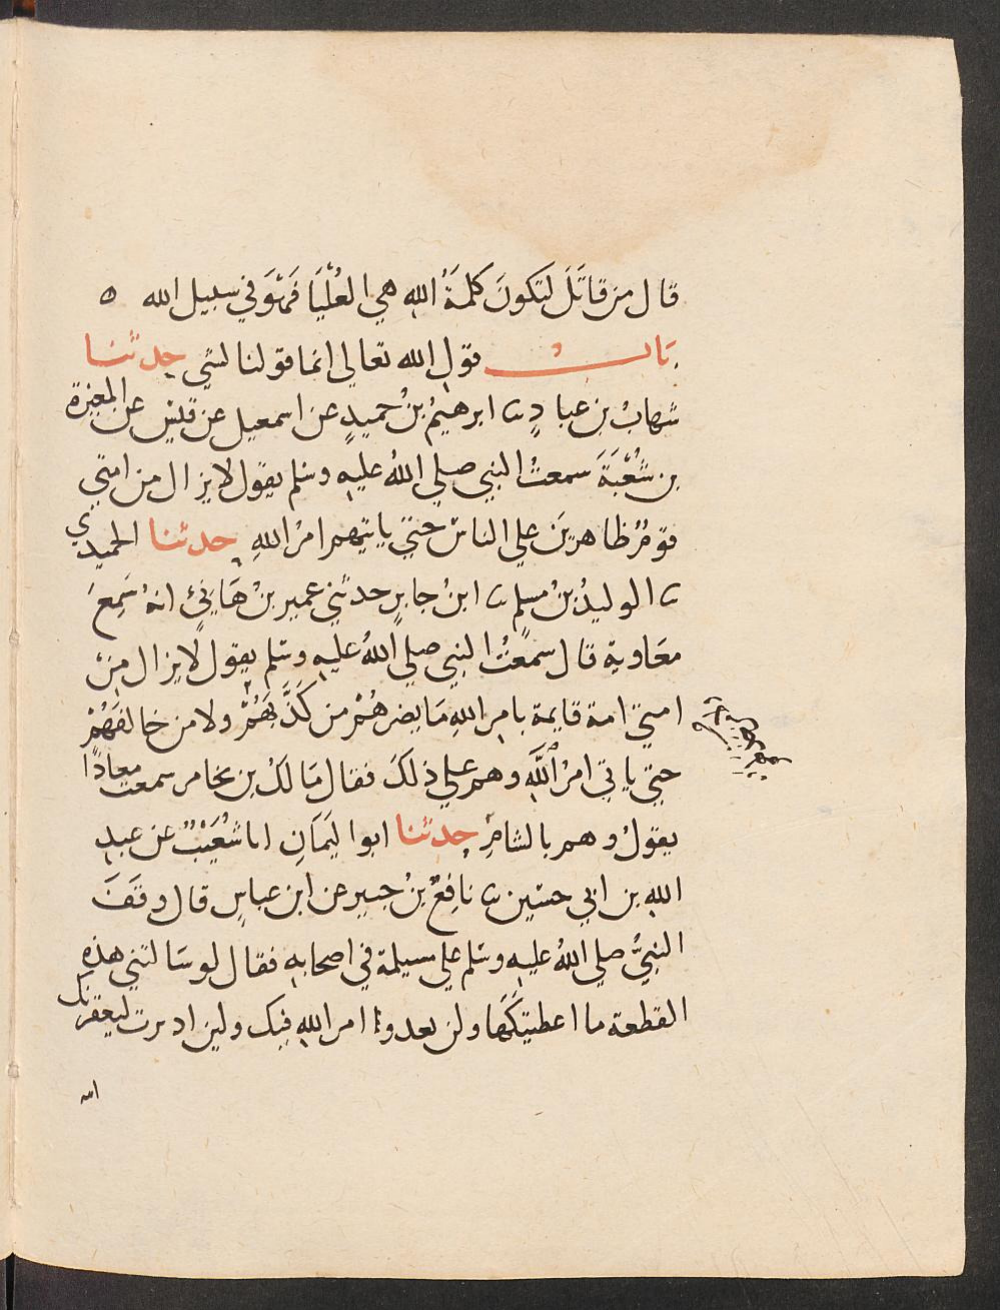 قال من قاتَلَ لتكونَ كلمَةُ الله هي العُلْيَا فَهُوَ في سبيل الله ه
بَابُ قول الله تعالي انما قولنا لشي حدثنا
شهابُ بن عبادٍ ثنا ابرهيمُ بنُ حميدٍ عن اسمعيل عن قيس عن المغيرة
بن شُعْبَةَ سمعتُ النبي صلي اللهُ عليه وسلم يقول لا يزال من امتي
قومٌ ظاهرينَ علي الناس حتي ياتيهم امرُ اللهِ حدثنا الحميدي
ثنا الوليدُ بنُ مسلمٍ ثنا ابنُ جابرٍ حدثني عمير بنُ هَانيٍ انهُ سَمِعَ
معَاوية قال سمعْتُ النبي صلي اللهُ عليه وسلم يقول لا يزال مِنْ
امتي امة قايمة بامرِ اللهِ مَا يضرهُمْ من كَذَّبَهُمْ ولا من خالفَهُمْ
حتي ياتي امرُ اللَّهِ وهم علي ذلكَ فقال مَالكُ بن يخامر سمعت معاذًا
يقولُ وهم بالشامِ حدثنا ابوا ليَمَانِ انا شُعَيْبٌ عن عبدِ
الله بن ابي حسَين ثنا نافِعُ بنُ جبيرٍ عن ابن عباسٍ قال وقَفَ
النبيُّ صلي اللهُ عليه وسلم علي مسيلمة في اصحابهِ فقال لو سَالتني هذهِ
القطعة ما اعطيتُكَهَا ولن تعدوا امر اللهِ فيك ولين ادبرت ليعقرنك
الله